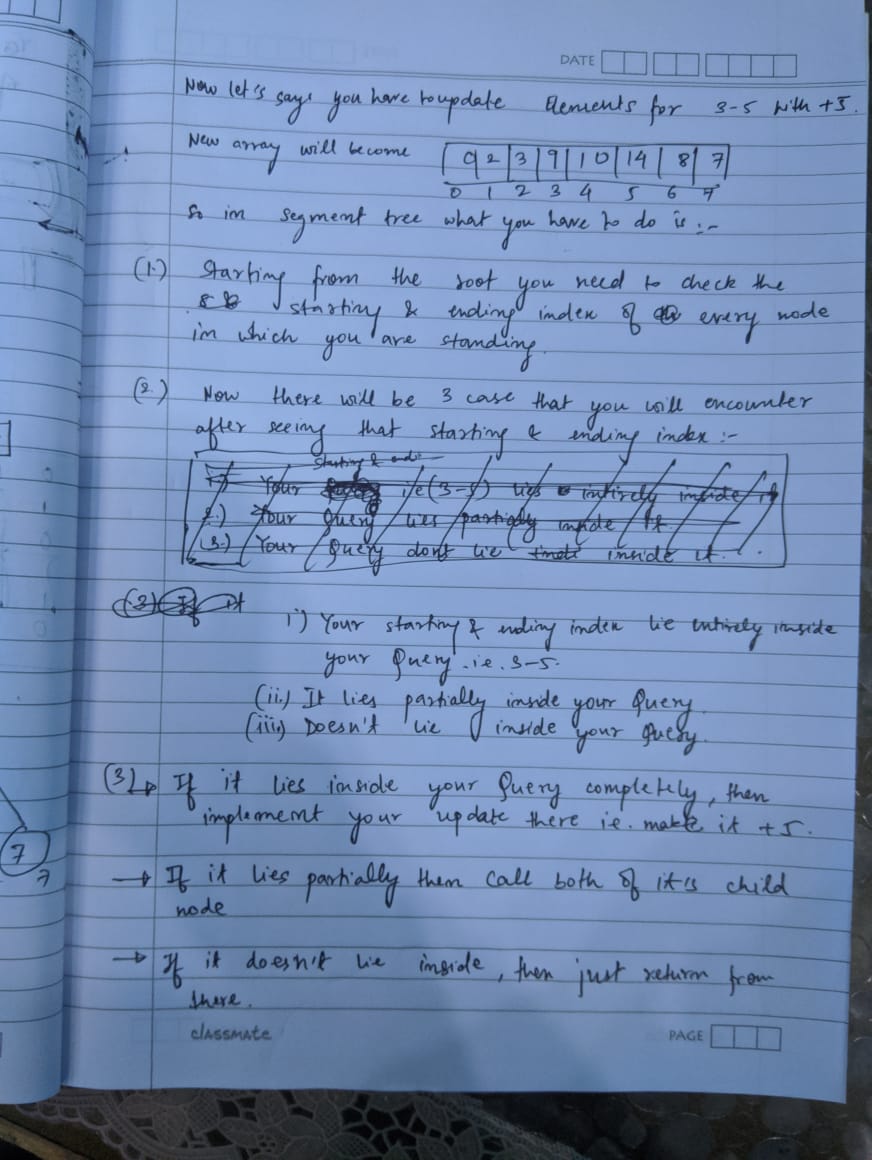 DATE
Now let's says you have to update Elements for 3-5 with +5.
New array will become 9 2 3 9 10 14 8 7
0 1 2 3 4 5 6 7
So in segment tree what you have to do is :-
(1.) Starting from the root you need to check the
starting & ending index of every node
in which you are standing.
(2.) Now there will be 3 case that you will encounter
after seeing that starting & ending index :-
Starting & endi
1.) Your i/e (3-5) lies intirely inside it
2.) Your Query lies partially inside it
(3.) Your Query dont lie inside it.
(3) If it
i) Your starting & ending index lie entirely inside
your Query .i.e. 3-5.
(ii.) It lies partially inside your Query.
(iii) Doesn't lie inside your Query.
(3) → If it lies inside your Query completely, then
implement your update there i.e. make it +5.
→ If it lies partially then call both of it's child
node
→ If it doesn't lie inside, then just return from
there.
classmate
PAGE
7
7